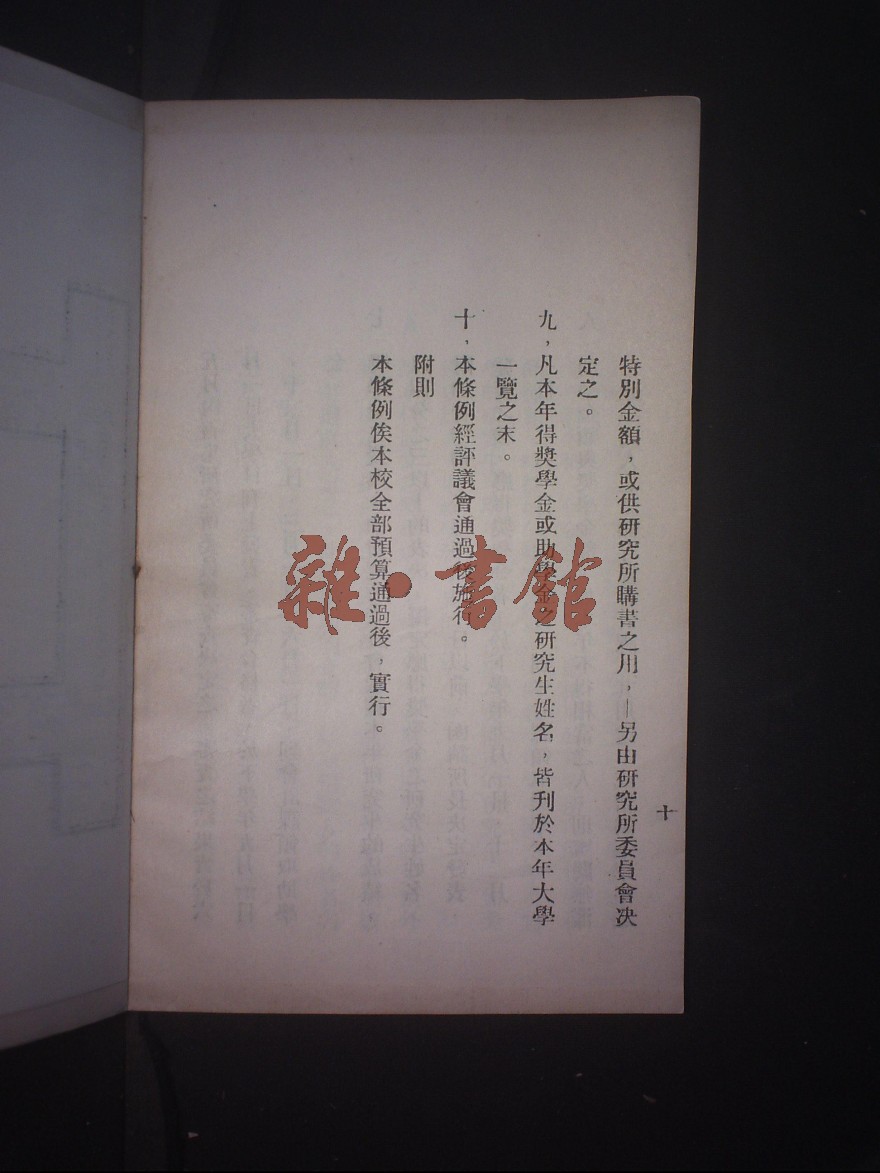 特別金額，或供研究所購書之用，—另由研究所委員會决
定之。
九，凡本年得獎學金或助學金之研究生姓名，皆刋於本年大學
一覽之末。
十，本條例經評議會通過後施行。
附則
本條例俟本校全部預算通過後，實行。
十
雜·書館